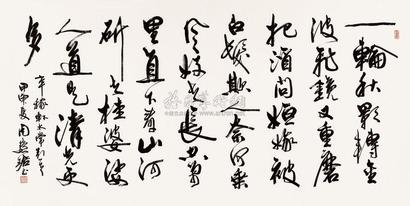 一輪秋影轉金
波飛鏡又重磨
把酒問姮娥被
白髮欺人奈何乘
風好去長空萬
里直下看山河
斫去桂婆娑
人道是清光更
多
辛稼軒太常引
甲申夏周慧珺书